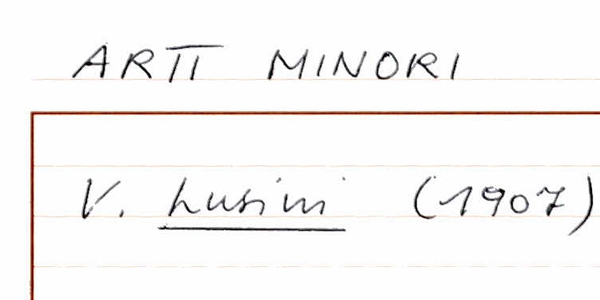 ARTI MINORI
V. Lusini (1907)